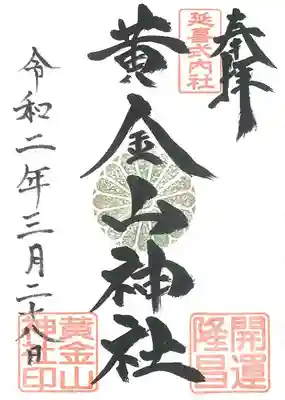 奉拝
延喜式内社
黄金山神社
開運
隆昌
令和二年三月二十八日
黄金山
神社印